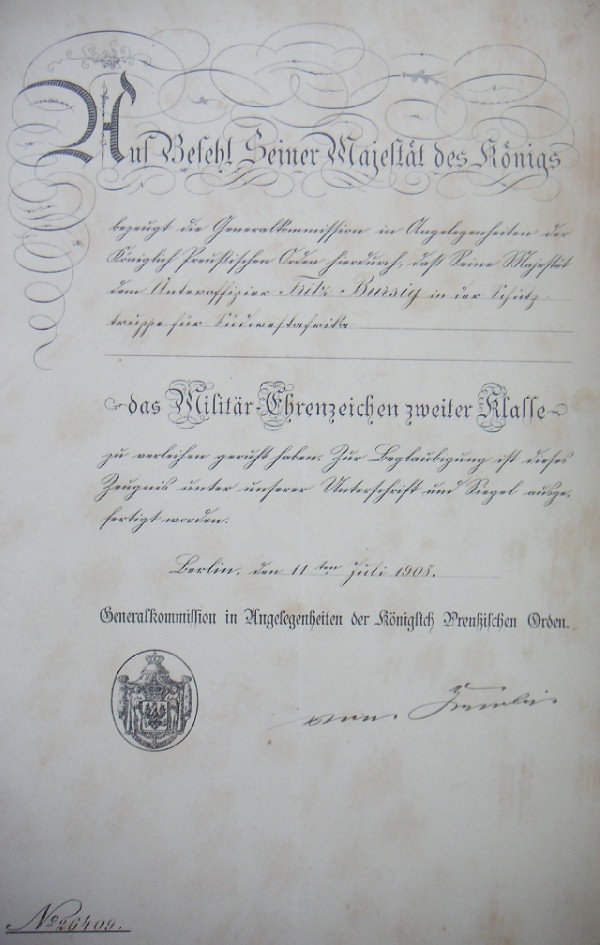 Auf Befehl Seiner Majestät des Königs
bezeugt die Generalkommission in Angelegenheiten der
Königlich Preußischen Orden hierdurch, daß Seine Majestät
dem Unteroffizier Fritz Bursig in der Schutz-
truppe für Südwestafrika
das Militär-Ehrenzeichen zweiter Klasse
zu verleihen geruht haben. Zur Beglaubigung ist dieses
Zeugnis unter unserer Unterschrift und Siegel ausge-
fertigt worden.
Berlin, den 11ten Juli 1905.
Generalkommission in Angelegenheiten der Königlich Preußischen Orden.
von
No 26409.